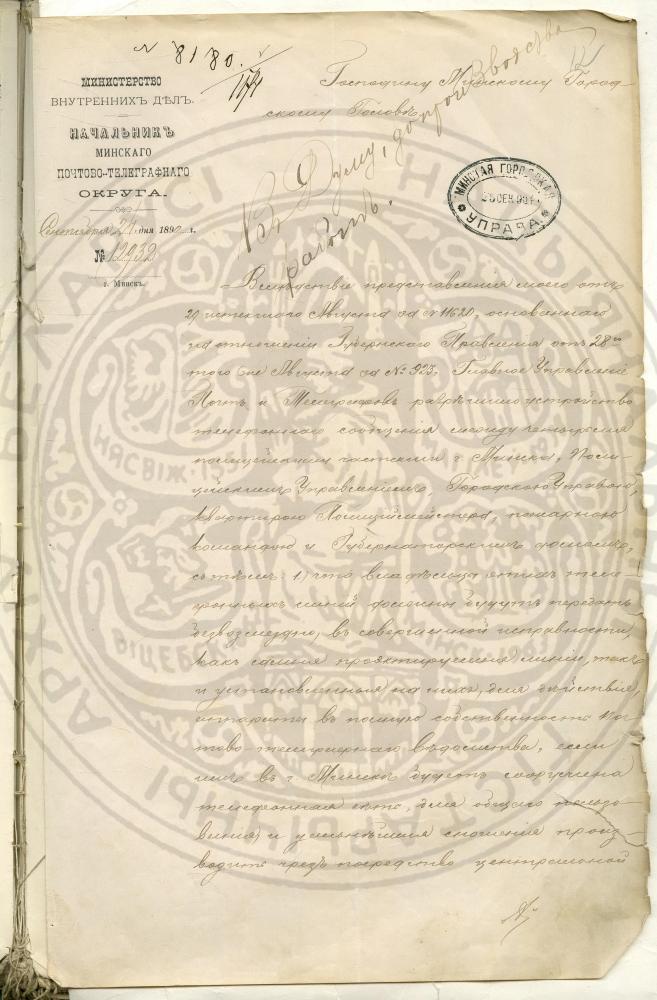 N 8180.
МИНИСТЕРСТВО
ВНУТРЕННИХЪ ДѢЛЪ.
НАЧАЛЬНИКЪ
МИНСКАГО
ПОЧТОВО-ТЕЛЕГРАФНАГО
ОКРУГА.
Сентября 24 дня 1890 г.
№ 12932
г. Минскъ.
Господину Минскому Город-
скому Головѣ.
Въ Думу, до производства
работъ.
МИНСКАЯ ГОРОДСКАЯ
25 СЕН. 90
УПРАВА
Вслѣдствіе представленія моего отъ
29 истекшаго Августа за № 11620, основаннаго
на отношеніи Губернскаго Правленія отъ 28го
того же Августа за № 923, Главное Управленіе
Почтъ и Телеграфовъ разрѣшило устройство
телефоннаго сообщенія между четырьмя
полицейскими частями г. Минска, Поли-
цейскимъ Управленіемъ, Городскою Управою,
квартирою Полиціймейстера, пожарною
командою и Губернаторскимъ домомъ,
съ тѣмъ: 1) что владѣльцы этихъ теле-
фонныхъ линій должны будутъ передать
безвозмездно, въ совершенной исправности
какъ самыя проэктируемыя линіи, такъ
и установленныя на нихъ, для дѣйствія,
аппараты въ полную собственность По-
чтово-телеграфнаго вѣдомства, если
имъ въ г. Минскѣ будетъ сооружена
телефонная сеть, для общаго пользо-
ванія, и дальнѣйшія сношенія произ-
водить чрезъ посредство центральной